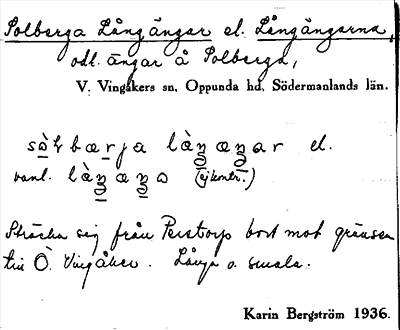 Solberga Långängar el. Långängarna,
odl. ängar å Solberga,
V. Vingåkers sn, Oppunda hd, Södermanlands län.
el.
vanl. (ej kontr.)
Sträcka sig från Perstorp bort mot gränsen
till Ö. Vingåker. Långa o. smala.
Karin Bergström 1936.